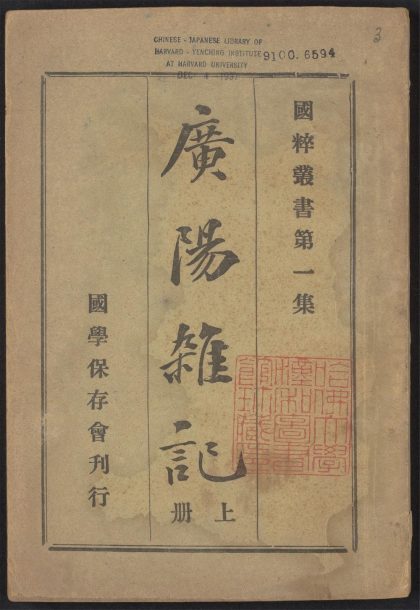 CHINESE - JAPANESE LIBRARY OF
HARVARD - YENCHING INSTITUTE
AT HARVARD UNIVERSITY
DEC 4 1937
9100.6594
3
國粹叢書第一集
廣陽雜記
上册
國學保存會刊行
哈佛大學
漢和圖書
館珍藏印